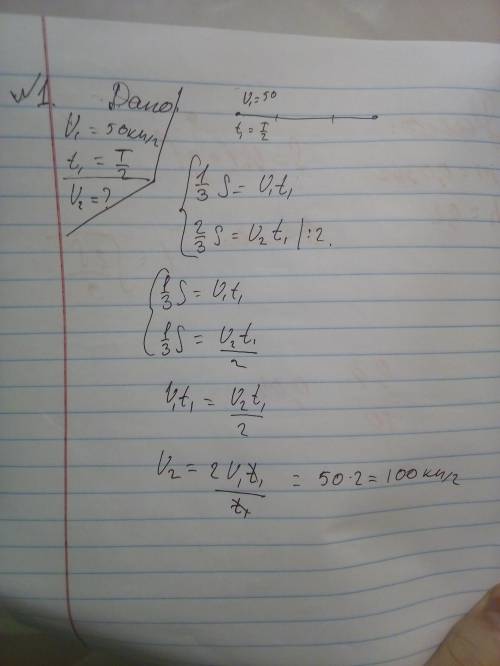 №1. Дано
V₁ = 50 км/ч
t₁ = T/2
V₂ = ?
V₁ = 50
t₁ = T/2
{ 1/3 S = V₁t₁
2/3 S = V₂t₁ | :2.
{ 1/3 S = V₁t₁
1/3 S = V₂t₁/2
V₁t₁ = V₂t₁/2
V₂ = 2V₁t₁/t₁ = 50·2 = 100 км/ч